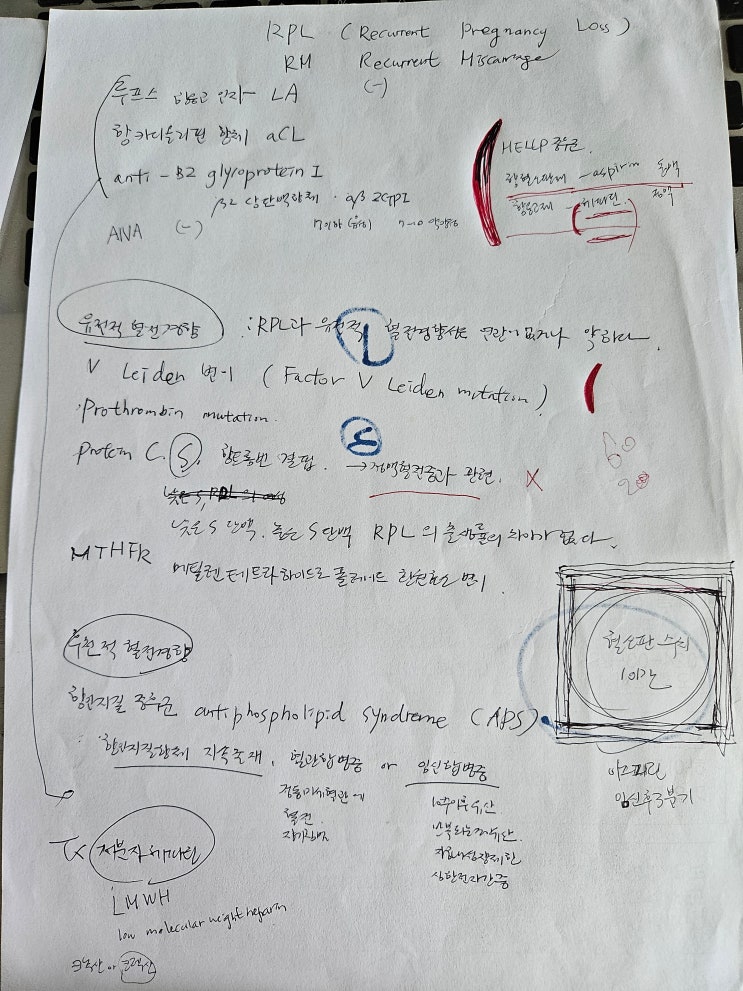 RPL (Recurrent Pregnancy Loss)
RM Recurrent Miscarriage
(-)
루프스 항응고 인자 - LA
항카디올리핀 항체 aCL
anti - B2 glyroprotein I
β2 당단백항체 · αβ2GPI
ANA (-)
HELLP 증후군
항혈소판제 - aspirin 동맥
항응고제 - 헤파린. 정맥
유전적 혈전경향 : RPL과 유전적 혈전경향성는 연관이 없거나 약하다.
V Leiden 변이 (Factor V Leiden mutation)
·Prothrombin mutation.
protein C. S. 항트롬빈 결핍. → 정맥혈전증과 관련. X
60
20
낮은 S 단백. 높은 S 단백 RPL의 출생률의 차이가 없다.
MTHFR 메틸렌테트라하이드로폴레이트 환원효소 변이
후천적 혈전경향
항인지질 증후군 antiphospholipid syndrome (APS)
항인지질항체 지속존재, 혈관합병증 or 임신합병증
혈전
10주이후유산
자궁내성장제한
혈소판 수치
10만
아스피린
임신후3분기
Tx 저분자헤파린
LMWH
low molecular weight heparin
크녹산 or 크렉산